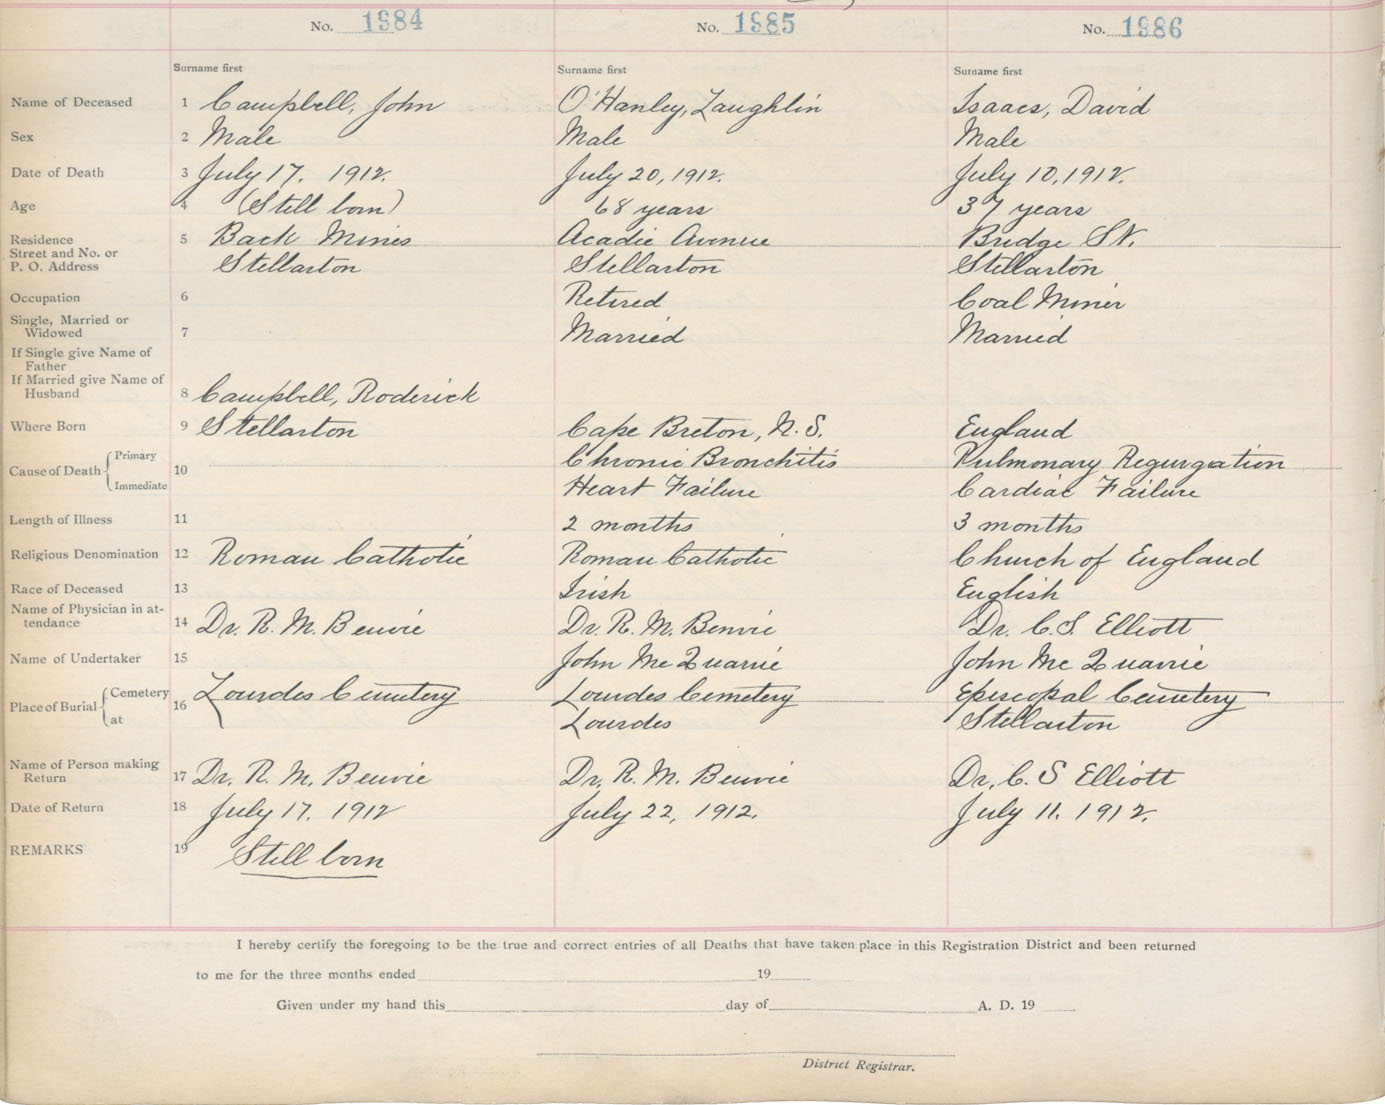 No. 1984 No. 1985 No. 1986
Surname first Surname first Surname first
Name of Deceased 1 Campbell, John O'Hanley, Laughlin Isaacs, David
Sex 2 Male Male Male
Date of Death 3 July 17. 1912. July 20, 1912. July 10, 1912.
Age 4 (Still born) 68 years 37 years
Residence 5 Back Mines Acadie Avenue Bridge St.
Street and No. or
P. O. Address Stellarton Stellarton Stellarton
Occupation 6 Retired Coal Miner
Single, Married or
Widowed 7 Married Married
If Single give Name of
Father
If Married give Name of
Husband 8 Campbell, Roderick
Where Born 9 Stellarton Cape Breton, N. S. England
Cause of Death 10 Primary Chronic Bronchitis Pulmonary Regurgation
Immediate Heart Failure Cardiac Failure
Length of Illness 11 2 months 3 months
Religious Denomination 12 Roman Catholic Roman Catholic Church of England
Race of Deceased 13 Irish English
Name of Physician in at-
tendance 14 Dr. R. M. Benvie Dr. R. M. Benvie Dr. C. S. Elliott
Name of Undertaker 15 John McQuarrie John McQuarrie
Place of Burial 16 Cemetery Lourdes Cemetery Lourdes Cemetery Episcopal Cemetery
at Lourdes Stellarton
Name of Person making
Return 17 Dr. R. M. Benvie Dr. R. M. Benvie Dr. C. S Elliott
Date of Return 18 July 17. 1912 July 22, 1912. July 11. 1912.
REMARKS 19 Still born
I hereby certify the foregoing to be the true and correct entries of all Deaths that have taken place in this Registration District and been returned
to me for the three months ended 19
Given under my hand this day of A. D. 19
District Registrar.